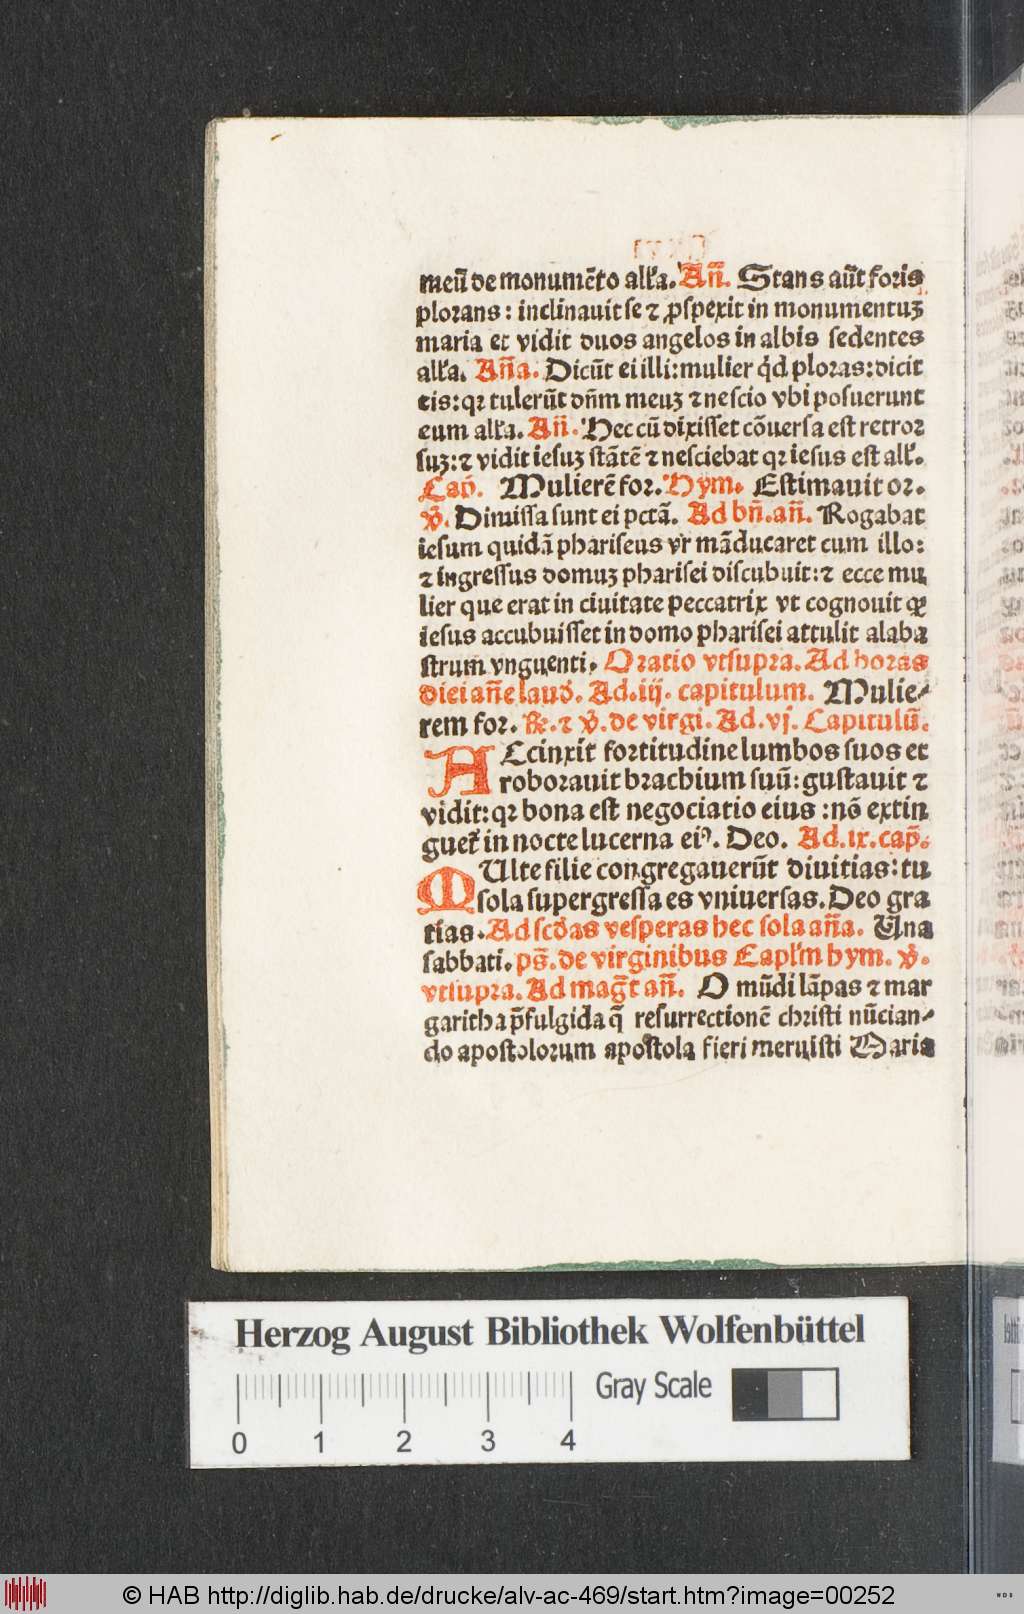 meū de monumēto all'a. Añ. Stans aūt foris
plorans: inclinauit se ⁊ ꝓspexit in monumentuꝫ
maria et vidit duos angelos in albis sedentes
all'a. Aña. Dicūt ei illi: mulier qͥd ploras: dicit
eis: qꝛ tulerūt dñm meuꝫ ⁊ nescio vbi posuerunt
eum all'a. Añ. Hec cū dixisset cōuersa est retror
suꝫ: ⁊ vidit iesuꝫ stātē ⁊ nesciebat qꝛ iesus est all'.
Cap̄. Mulierē for. Hym. Estimauit or.
℣. Dimissa sunt ei pctā. Ad bñ. añ. Rogabat
iesum quidā phariseus vt māducaret cum illo:
⁊ ingressus domuꝫ pharisei discubuit: ⁊ ecce mu
lier que erat in ciuitate peccatrix vt cognouit ꝙ
iesus accubuisset in domo pharisei attulit alaba
strum vnguenti. Oratio vtsupra. Ad horas
diei añe laud'. Ad .iij. capitulum. Mulie⸗
rem for. ℟. ⁊ ℣. de virgi. Ad .vj. Capitulū.
ACcinxit fortitudine lumbos suos et
roborauit brachium suū: gustauit ⁊
vidit: qꝛ bona est negociatio eius: nō extin
guet' in nocte lucerna eiꝰ. Deo. Ad .ix. cap̄.
MUlte filie congregauerūt diuitias: tu
sola supergressa es vniuersas. Deo gra
tias. Ad scd'as vesperas hec sola aña. Una
sabbati. ps̄. de virginibus Capl'm hym. ℣.
vtsupra. Ad mag̅t añ. O mūdi lāpas ⁊ mar
garitha p̄fulgida q̄ resurrectionē christi nūcian⸗
do apostolorum apostola fieri meruisti Maria
Herzog August Bibliothek Wolfenbüttel
Gray Scale
0 1 2 3 4
© HAB http://diglib.hab.de/drucke/alv-ac-469/start.htm?image=00252